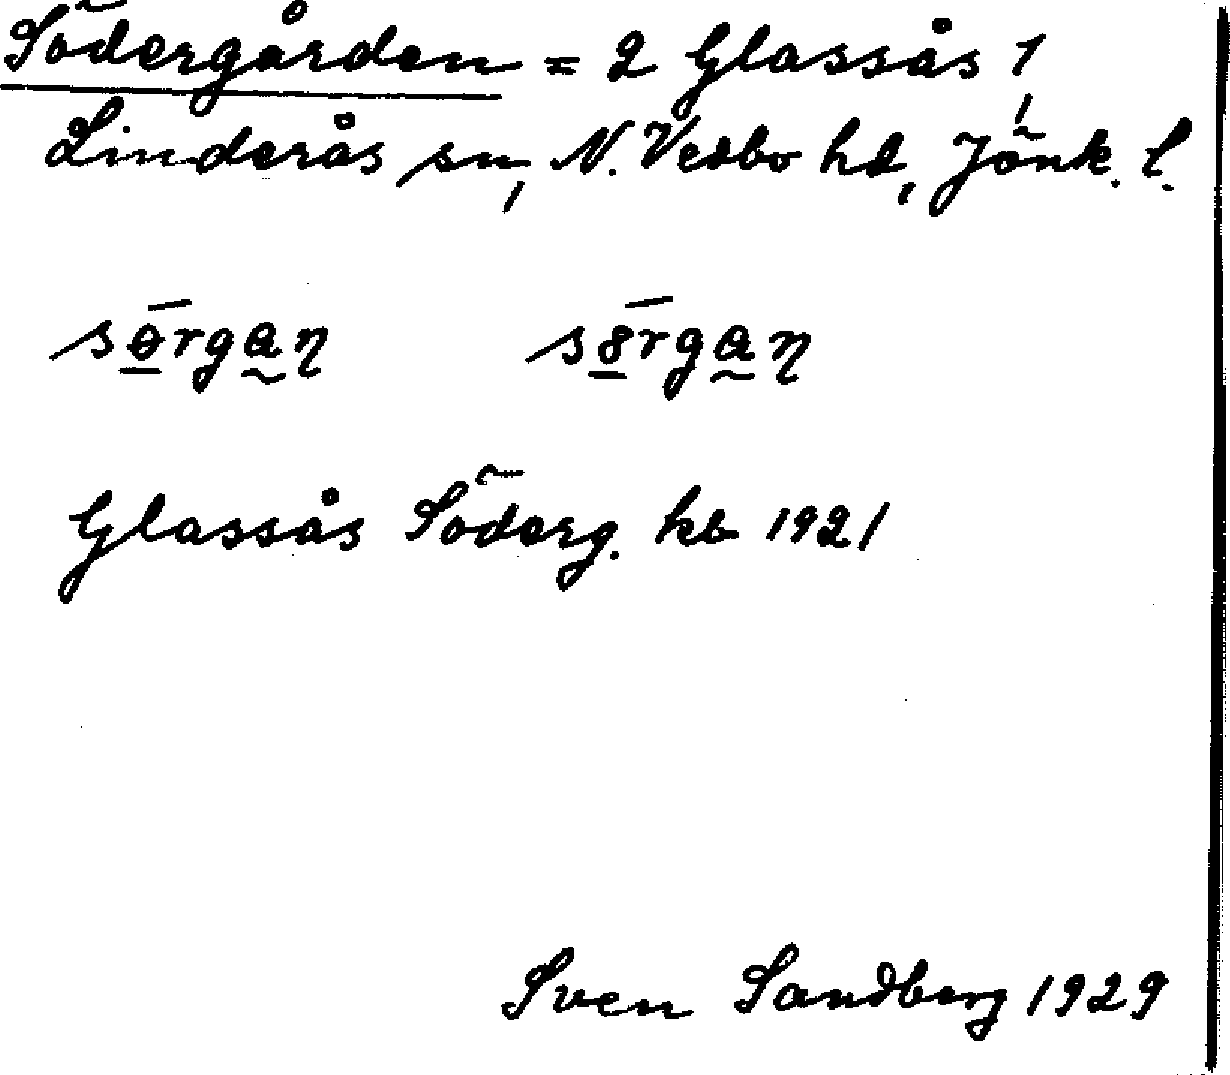 Södergården = 2 Glassås 1,
Linderås sn, N. Vedbo hd, Jönk. l.
Glassås Söderg. kb 1921
Sven Sandberg 1929